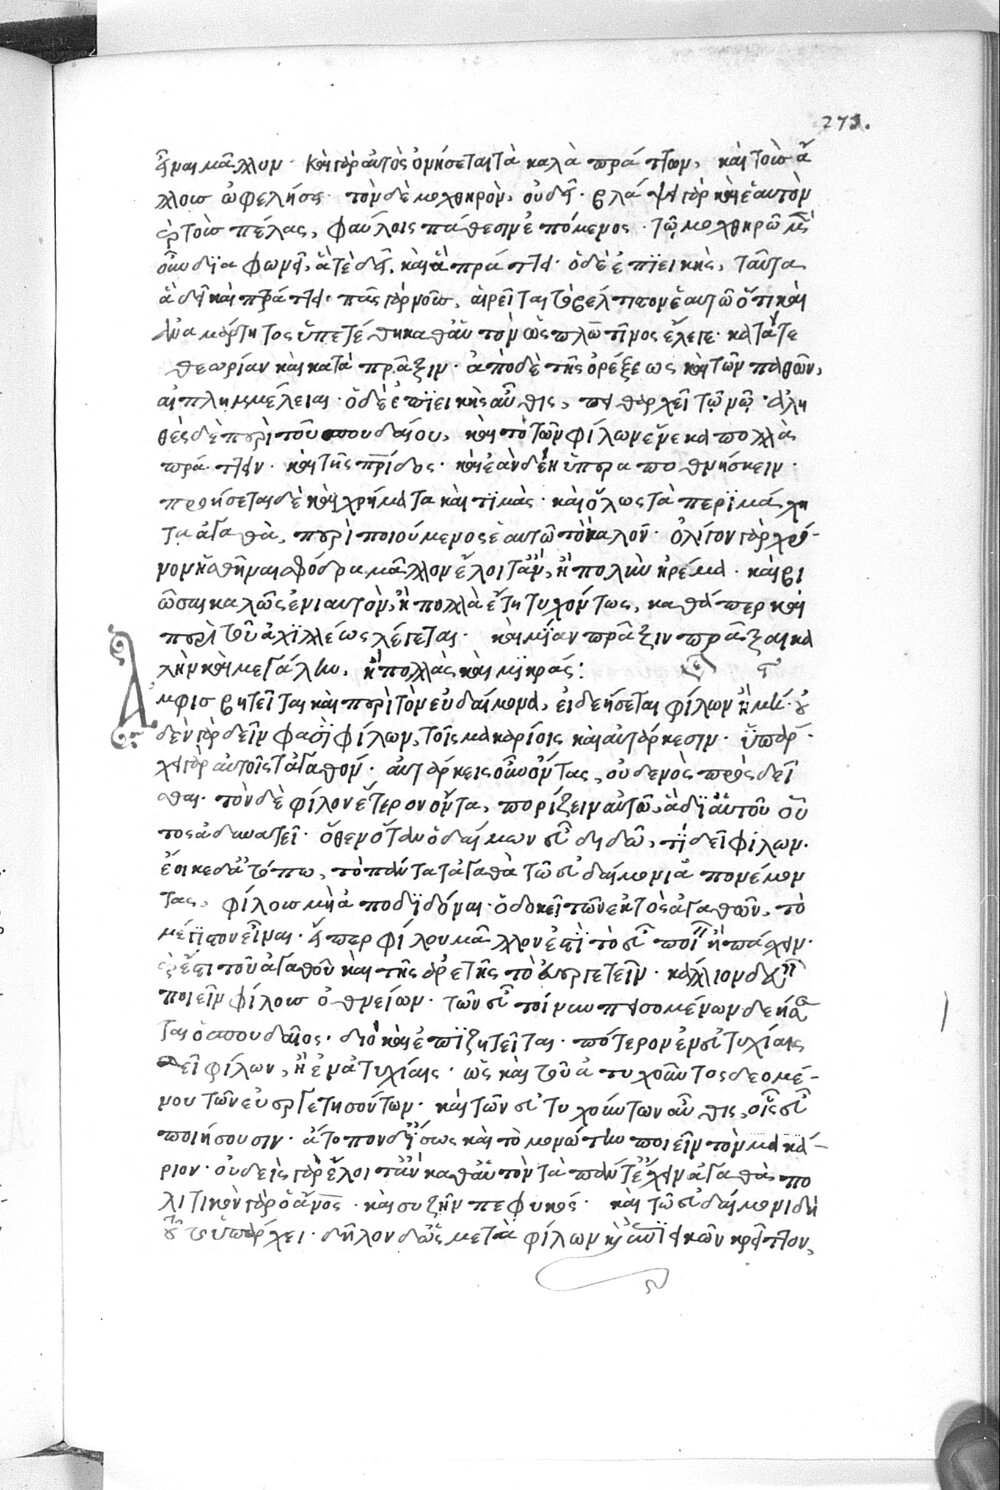 273.
εἶναι μᾶλλον· καὶ γὰρ αὐτὸς ὀνήσεται τὰ καλὰ πράττων, καὶ τοὺς ἄ
λλους ὠφελήσει· τὸν δὲ μοχθηρὸν, οὐ δεῖ· βλάψει γὰρ καὶ ἑαυτὸν
καὶ τοὺς πέλας, φαύλοις πάθεσιν ἑπόμενος· τῷ μοχθηρῷ μὲν
οὖν διαφωνεῖ, ἅ τε δεῖ, καὶ ἃ πράττει· ὁ δὲ ἐπιεικὴς, ταῦτα
ἃ δεῖ καὶ πράττει· πᾶς γὰρ νοῦς, αἱρεῖται τὸ βέλτιστον ἑαυτῷ ὅτι καὶ
ἀναμάρτητος ὑπετέθη καθ' αὑτὸν ὡς πλωτῖνος ἔλεγε· κατά τε
θεωρίαν καὶ κατὰ πρᾶξιν· ἀπὸ δὲ τῆς ὀρέξεως καὶ τῶν παθῶν,
αἱ πλημμέλειαι· ὁ δὲ ἐπιεικὴς αὖθις, πειθαρχεῖ τῷ νῷ· ἀλη
θὲς δὲ περὶ τοῦ σπουδαίου, καὶ τὸ τῶν φίλων ἕνεκα πολλὰ
πράττειν· καὶ τῆς πρίδος· καὶ ἐὰν δέῃ ὑπεραποθνήσκειν·
προήσεται δὲ καὶ χρήματα καὶ τιμὰς· καὶ ὅλως τὰ περιμάχη
τα ἀγαθὰ, περιποιούμενος ἑαυτῷ τὸ καλὸν· ὀλίγον γὰρ χρό-
νον ἡσθῆναι σφόδρα μᾶλλον ἕλοιτ' ἂν, ἢ πολὺν ἠρέμα· καὶ βι
ῶσαι καλῶς ἐνιαυτὸν, ἢ πολλὰ ἔτη τυχόντως, καθάπερ καὶ
περὶ τοῦ ἀχιλλέως λέγεται· καὶ μίαν πρᾶξιν πρᾶξαι κα
λὴν καὶ μεγάλην, ἢ πολλὰς καὶ μικράς:
Ἀμφισβητεῖται καὶ περὶ τὸν εὐδαίμονα, εἰ δεήσεται φίλων ἢ μή· οὐ
δὲν γὰρ δεῖν φασὶ φίλων, τοῖς μακαρίοις καὶ αὐτάρκεσιν· ὑπάρ-
χει γὰρ αὐτοῖς τἀγαθόν· αὐτάρκεις οὖν ὄντας, οὐδενὸς προσδεῖ
σθαι· τὸν δὲ φίλον ἕτερον ὄντα, πορίζειν αὐτῷ, ἃ δι' αὑτοῦ οὗ
τος ἀδυνατεῖ· ὅθεν ὅταν ὁ δαίμων εὖ διδῶ, τί δεῖ φίλων·
ἔοικε δ' ἀτόπῳ, τὸ πάντα τἀγαθὰ τῷ εὐδαίμονι ἀπονέμον
τας, φίλους μὴ ἀποδιδόναι· ὃ δοκεῖ τῶν ἐκτὸς ἀγαθῶν, τὸ
μέγιστον εἶναι· εἴπερ φίλου μᾶλλον ἐστὶ τὸ εὖ ποιεῖν ἢ πάσχειν·
καὶ ἔστι τοῦ ἀγαθοῦ καὶ τῆς ἀρετῆς τὸ εὐεργετεῖν· κάλλιον δ' εὖ
ποιεῖν φίλους ὀθνείων· τῶν εὖ τοίνυν πεισομένων δεήσε
ται ὁ σπουδαῖος· διὸ καὶ ἐπιζητεῖται· πότερον ἐν εὐτυχίαις
δεῖ φίλων, ἢ ἐν ἀτυχίαις· ὡς καὶ τοῦ ἀτυχοῦντος δεομέ-
νου τῶν εὐεργετησόντων· καὶ τῶν εὐτυχούντων αὖθις, οὓς εὖ
ποιήσουσιν· ἄτοπον δ' ἴσως καὶ τὸ μονώτην ποιεῖν τὸν μακά-
ριον· οὐδεὶς γὰρ ἕλοιτ' ἂν καθ' αὑτὸν τὰ πάντ' ἔχειν ἀγαθὰ· πο
λιτικὸν γὰρ ὁ ἄνος· καὶ συζῆν πεφυκός· καὶ τῷ εὐδαίμονι δὴ
τοῦτο ὑπάρχει· δῆλον δ' ὡς μετὰ φίλων καὶ ἐπιεικῶν κρεῖττον,